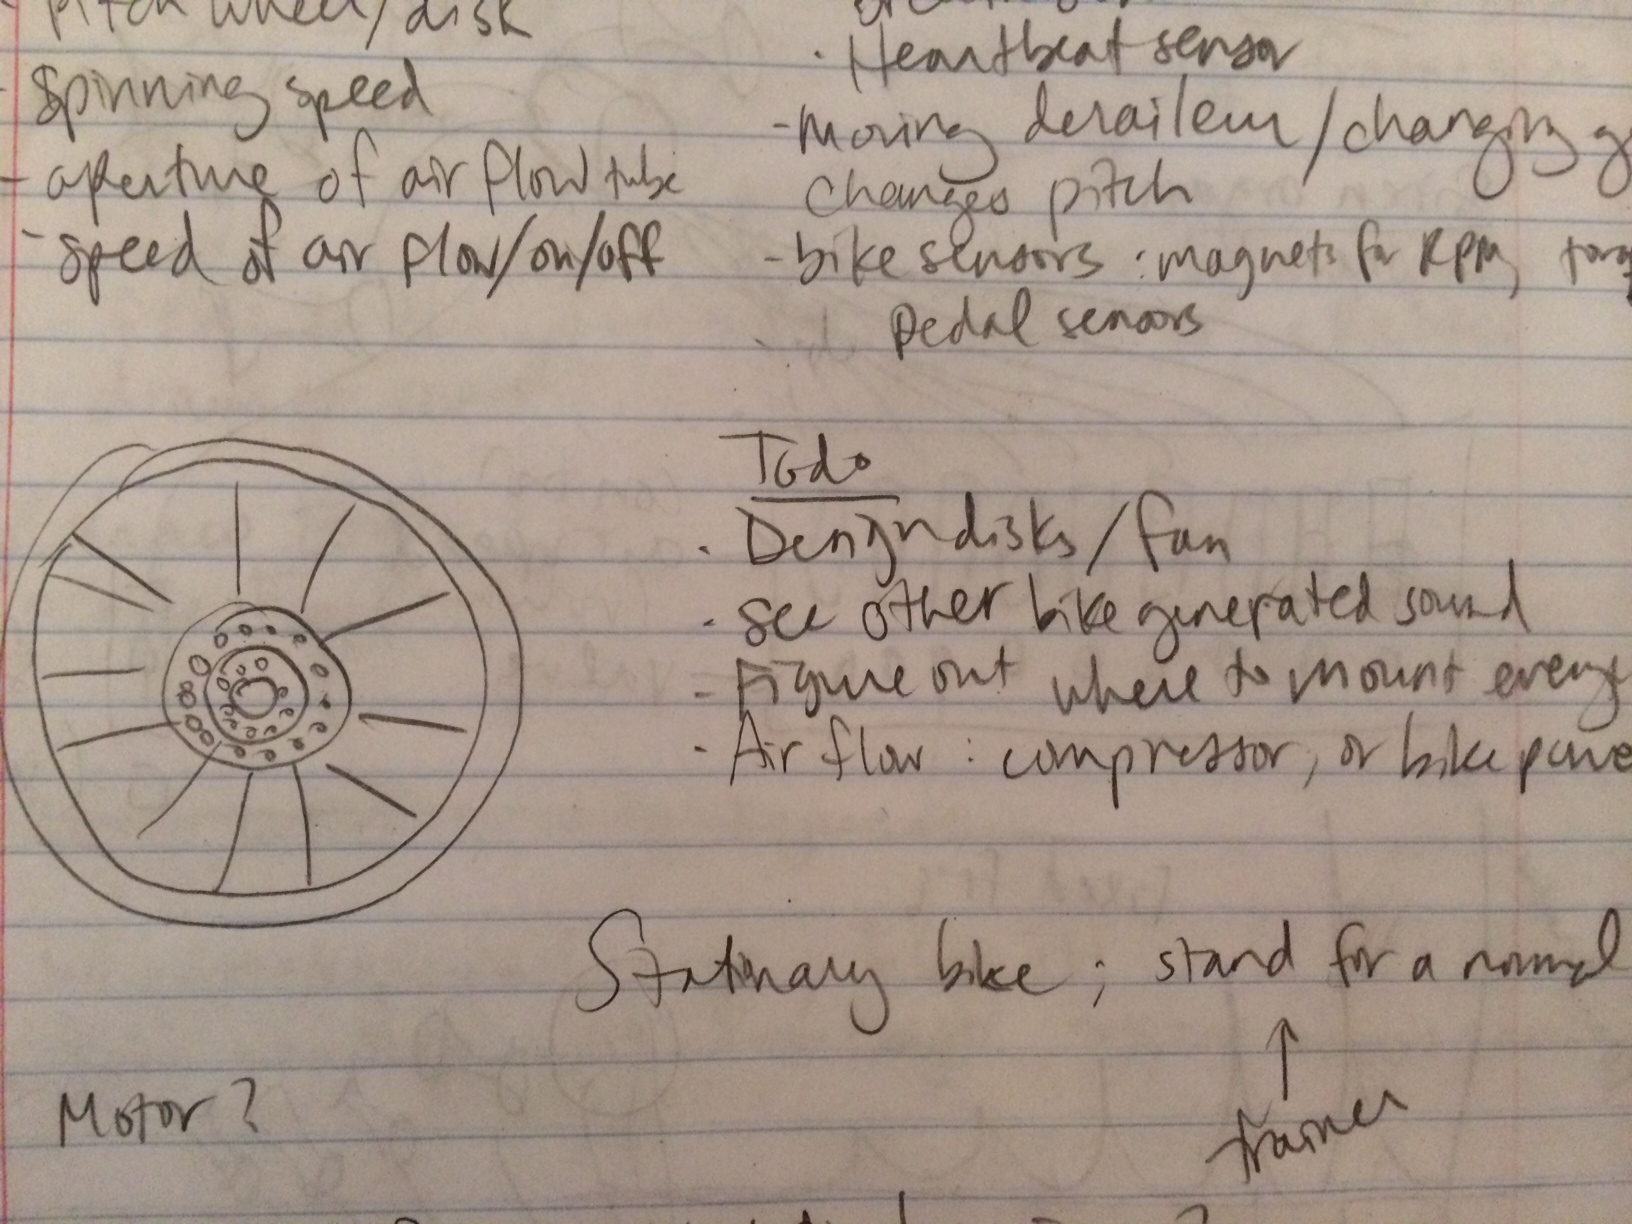 pitch wheel/disk
- spinning speed
- aperture of air flow tube
- speed of air flow/on/off
· Heartbeat sensor
- moving deraileur/changing
changes pitch
- bike sensors : magnets for RPM,
pedal sensors
Todo
· Design disks/fan
· see other bike generated sound
- Figure out where to mount
- Air flow : compressor, or bike
Stationary bike ; stand for a normal
↑
trainer
Motor?